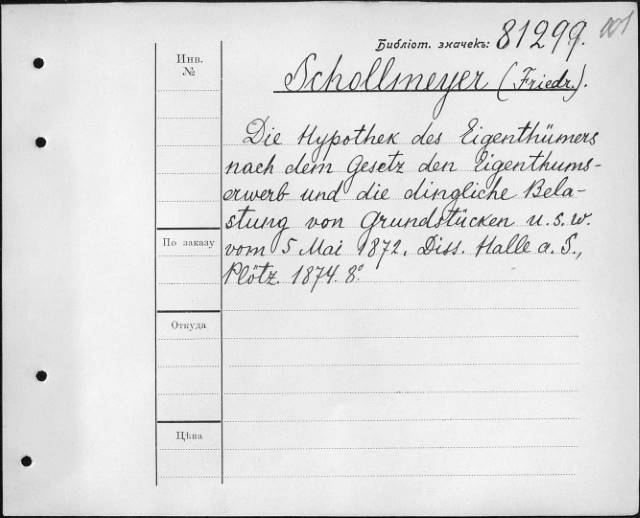 Библіот. значекъ: 81299. 001
Инв.
№
Schollmeyer (Friedr.).
Die Hypothek des Eigenthümers
nach dem Gesetz den Eigenthums-
erwerb und die dingliche Bela-
stung von Grundstücken u. s. w.
По заказу
vom 5 Mai 1872. Diss. Halle a. S.,
Plötz. 1874. 8°
Откуда
Цѣна